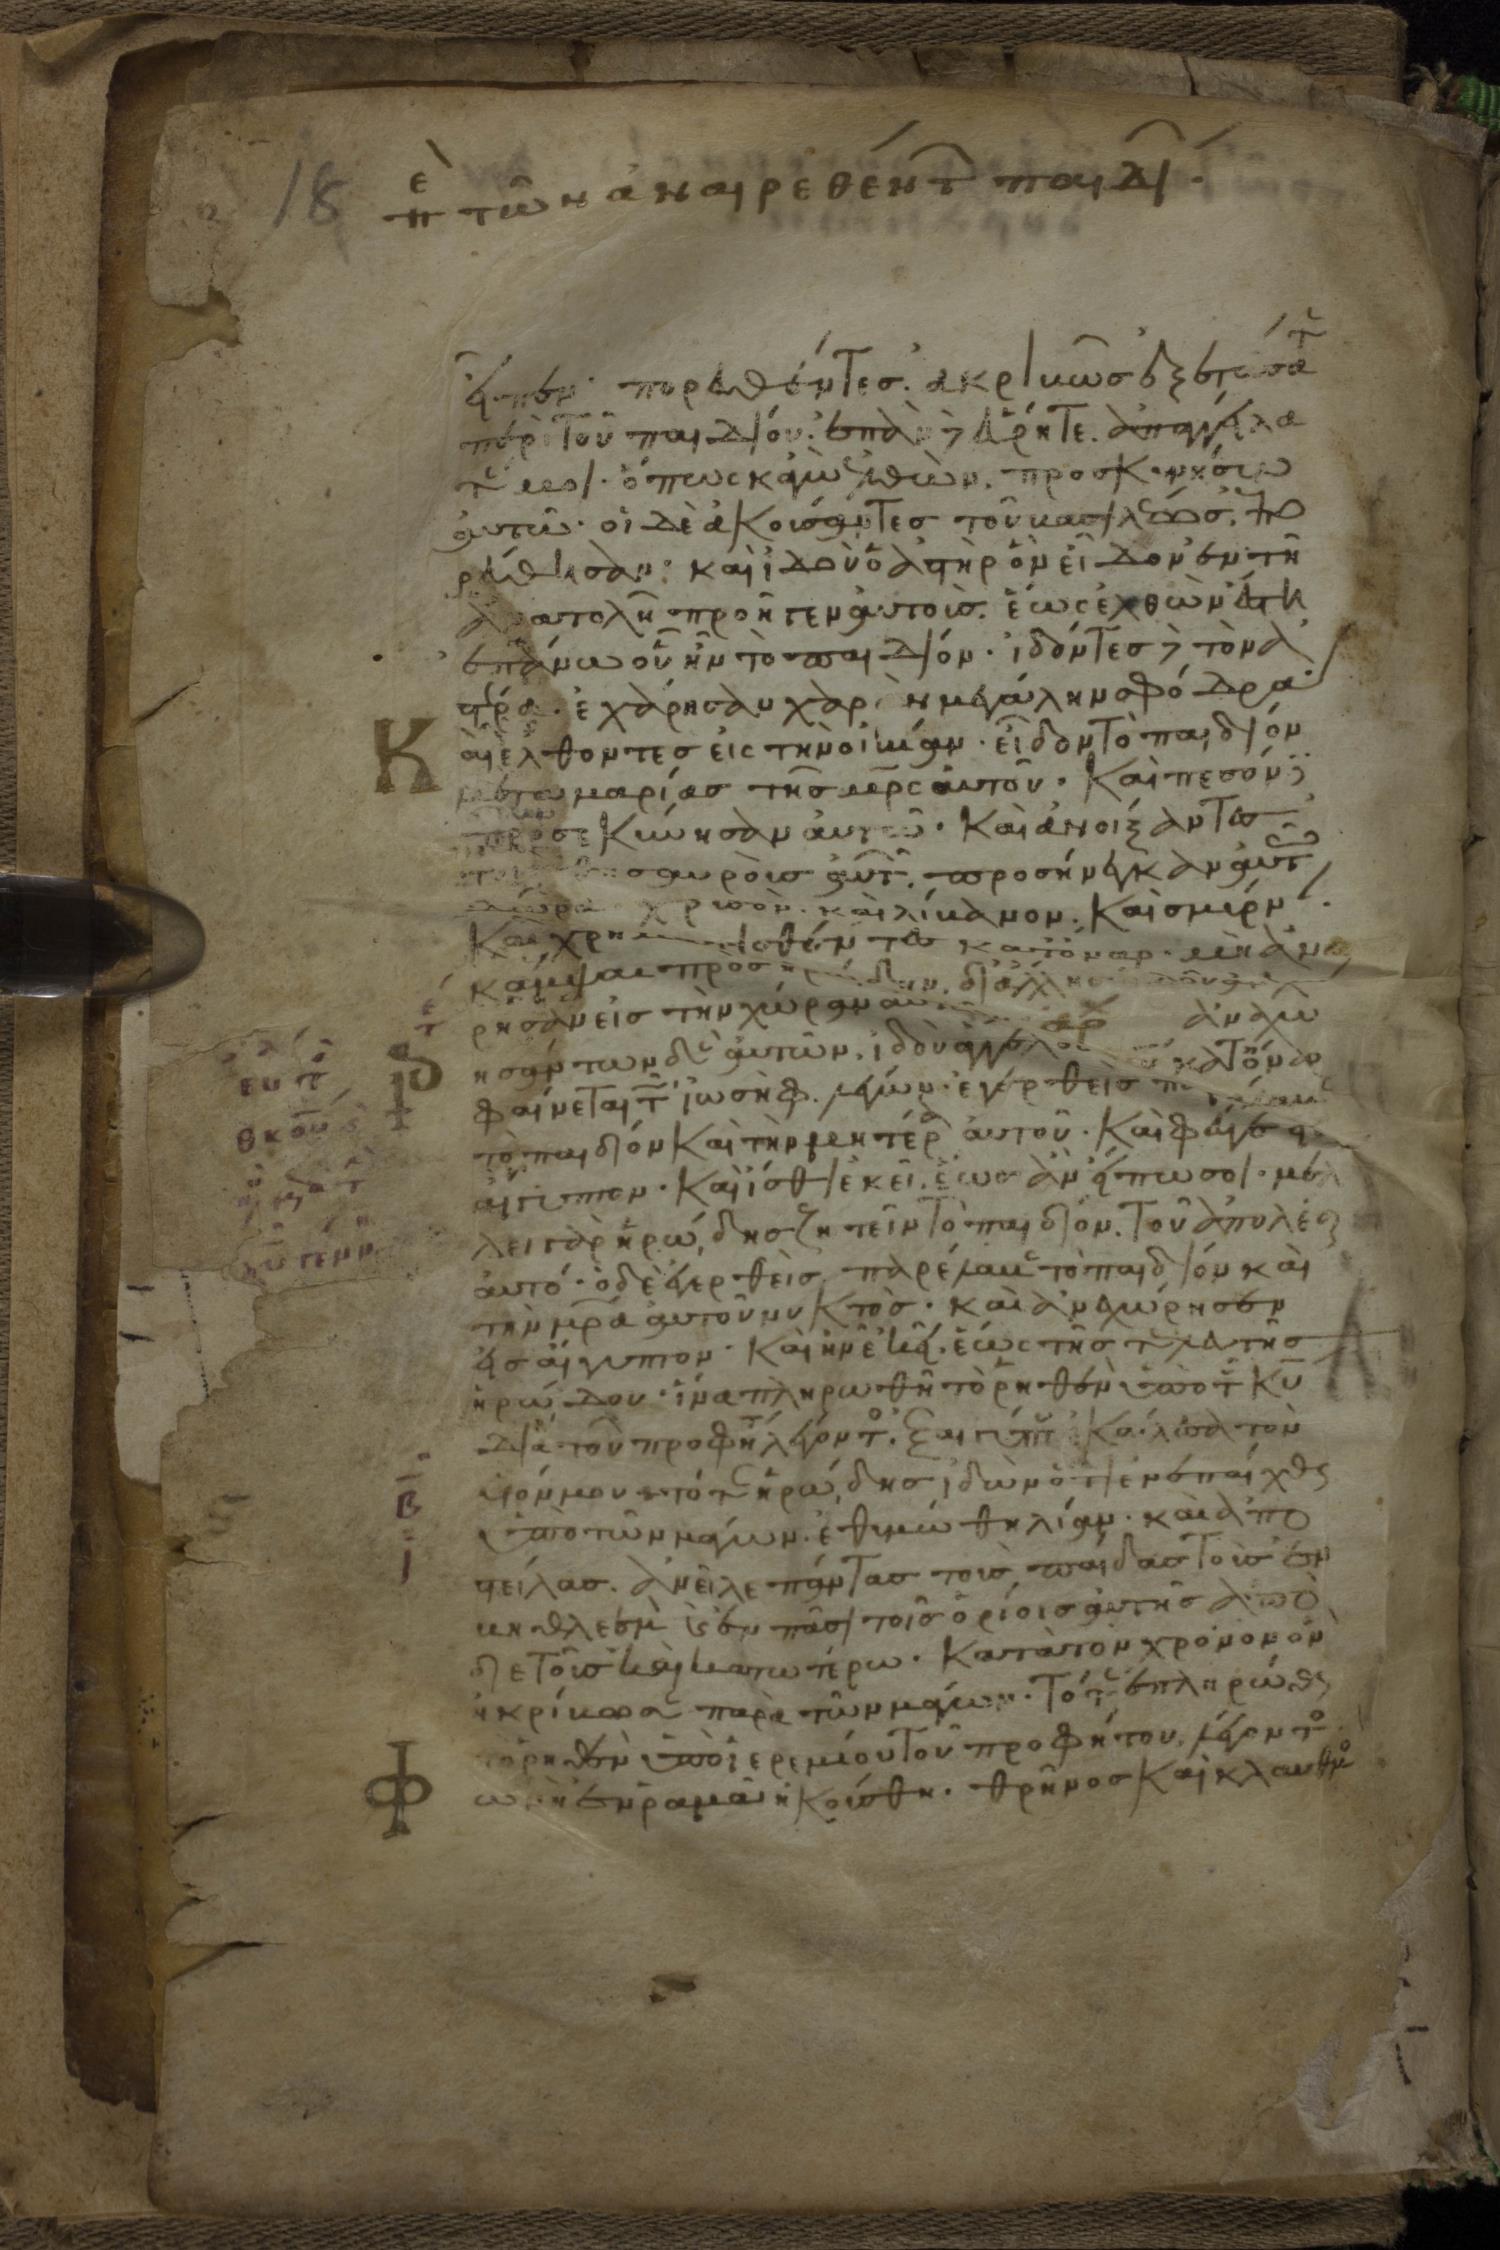 18
πε τῶν ἀναιρεθέντ παιδί
εἶπεν· πορευθέντες ἀκριβῶς ἐξετάσατε
περὶ τοῦ παιδίου· ἐπὰν δὲ εὕρητε. ἀπαγγείλα
τέ μοι· ὅπως κἀγὼ ἐλθὼν. προσκυνήσω
αὐτῶ· οἱ δὲ ἀκούσαντες τοῦ βασιλέως. ἐπο
ρεύθησαν· καὶ ἰδοὺ ὁ ἀστὴρ ὃν εἶδον ἐν τῆ
ἀνατολῆ προῆγεν αὐτοὺς. ἕως ἐλθὼν ἔστη
ἐπάνω οὗ ἦν τὸ παιδίον· ἰδόντες δὲ τὸν ἀ
στέρα. ἐχάρησαν χαρὰν μεγάλην σφόδρα·
Καὶ ἐλθοντες εἰς τὴν οἰκίαν· εἶδον τὸ παιδίον
μετὰ μαρίας τῆς μρς αὐτοῦ· καὶ πεσόντες
προσεκύνησαν αὐτῶ· καὶ ἀνοίξαντες
τοὺς θησαυροὺς αὐτῶν. προσήνεγκαν αὐτῶ
δῶρα χρυσὸν. καὶ λίβανον. καὶ σμύρναν.
Καὶ χρηματισθέντες κατόναρ. μὴ ἀνα
κάμψαι πρὸς ἡρώδην. δι ἄλλης ὁδοῦ ἀνεχώ
ρησαν εἰς τὴν χώραν αὐτῶν ἀρχ ἀναχω
ησάντων δὲ αὐτῶν. ἰδοὺ ἄγγελος κυ κατόναρ
φαίνεται τῶ ἰωσὴφ. λέγων· ἐγερθεὶς παράλαβε
τὸ παιδίον καὶ τὴν μητέρα αὐτοῦ· καὶ φεῦγε εἰς
αἴγυπτον· καὶ ἴσθι ἐκεῖ. ἕως ἂν εἴπω σοι· μέλ
λει γὰρ ἡρώδης ζητεῖν τὸ παιδίον. τοῦ ἀπολέσαι
αὐτό· ὁ δὲ ἐγερθεὶς παρέλαβε τὸ παιδίον καὶ
τὴν μρα αὐτοῦ νυκτὸς· καὶ ἀνεχώρησεν
εἰς αἴγυπτον· καὶ ἦν ἐκεῖ. ἕως τῆς τελευτῆς
ἡρώδου· ἵνα πληρωθῆ τὸ ῥηθὲν ὑπὸ τοῦ κυ
διὰ τοῦ προφήτου λέγοντος. ἐξ αἰγύπτου ἐκάλεσα τὸν
υἱόν μου τότε ἡρώδης ἰδὼν ὅτι ἐνεπαίχθη
ὑπὸ τῶν μάγων. ἐθυμώθη λίαν· καὶ ἀπο
στείλας. ἀνεῖλε πάντας τοὺς παῖδας τοὺς ἐν
βηθλεὲμ καὶ ἐν πᾶσι τοῖς ὁρίοις αὐτῆς ἀπὸ
διετοῦς καὶ κατωτέρω· Κατὰ τὸν χρόνον ὃν
ἠκρίβωσε παρὰ τῶν μάγων. Τότε ἐπληρώθη
τὸ ῥηθὲν ὑπὸ ἱερεμίου τοῦ προφήτου. λέγοντος
Φωνὴ ἐν ῥαμᾶ ἠκούσθη· θρῆνος καὶ κλαυθμὸ